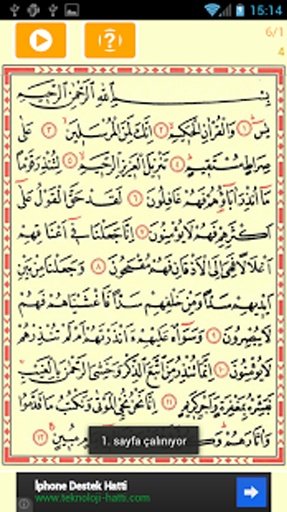 15:14
6/1
4
بِسْمِ اللّٰهِ الرَّحْمٰنِ الرَّحِيمِ
يٰسٓ ﴿١﴾ وَالْقُرْاٰنِ الْحَكِيمِ ﴿٢﴾ اِنَّكَ لَمِنَ الْمُرْسَلِينَ ﴿٣﴾ عَلٰى
صِرَاطٍ مُسْتَقِيمٍ ﴿٤﴾ تَنْزِيلَ الْعَزِيزِ الرَّحِيمِ ﴿٥﴾ لِتُنْذِرَ قَوْمًا
مَٓا اُنْذِرَ اٰبَٓاؤُهُمْ فَهُمْ غَافِلُونَ ﴿٦﴾ لَقَدْ حَقَّ الْقَوْلُ عَلٰٓى
اَكْثَرِهِمْ فَهُمْ لَا يُؤْمِنُونَ ﴿٧﴾ اِنَّا جَعَلْنَا فِٓى اَعْنَاقِهِمْ
اَغْلَالًا فَهِىَ اِلَى الْاَذْقَانِ فَهُمْ مُقْمَحُونَ ﴿٨﴾ وَجَعَلْنَا مِنْ بَيْنِ
اَيْدِيهِمْ سَدًّا وَمِنْ خَلْفِهِمْ سَدًّا فَاَغْشَيْنَاهُمْ فَهُمْ
لَا يُبْصِرُونَ ﴿٩﴾ وَسَوَٓاءٌ عَلَيْهِمْ ءَاَنْذَرْتَهُمْ اَمْ لَمْ تُنْذِرْهُمْ
لَا يُؤْمِنُونَ ﴿١٠﴾ اِنَّمَا تُنْذِرُ مَنِ اتَّبَعَ الذِّكْرَ وَخَشِىَ الرَّحْمٰنَ بِالْغَيْبِ
فَبَشِّرْهُ بِمَغْفِرَةٍ وَاَجْرٍ كَرِيمٍ ﴿١١﴾ اِنَّا نَحْنُ نُحْيِى الْمَوْتٰى وَنَكْتُبُ مَا قَدَّمُوا
وَاٰثَارَهُمْ وَكُلَّ مُبِينٍ ﴿١٢﴾
1. sayfa çalınıyor
İphone Destek Hatti
www.teknoloji-hatti.com